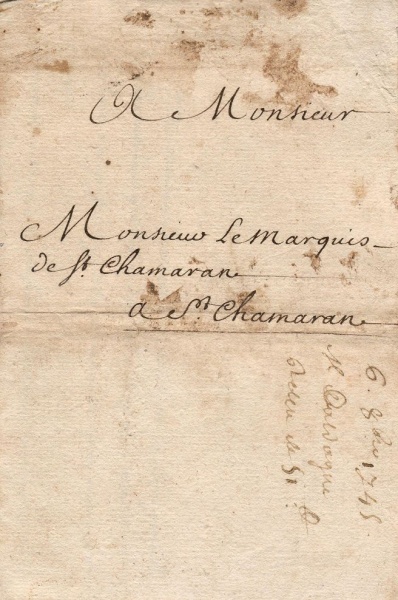 A Monsieur
Monsieur Le Marquis
de St Chamaran
a St Chamaran
6. 8bre 1745
Mr
de 51